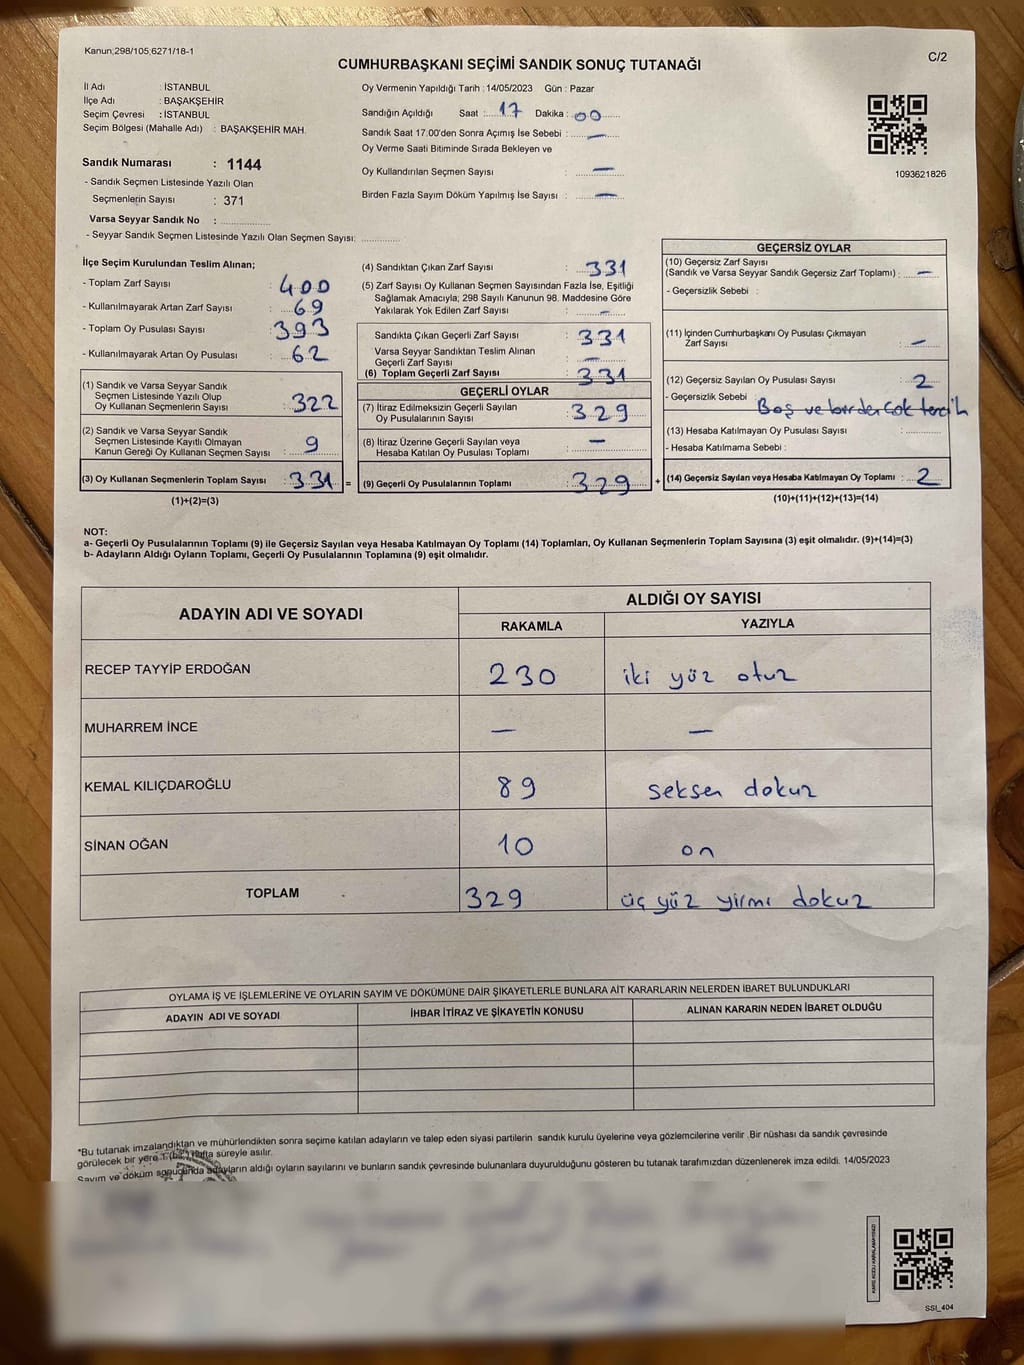 Kanun;298/105,6271/18-1
C/2
CUMHURBAŞKANI SEÇİMİ SANDIK SONUÇ TUTANAĞI
İl Adı : İSTANBUL
İlçe Adı : BAŞAKŞEHİR
Seçim Çevresi : İSTANBUL
Seçim Bölgesi (Mahalle Adı) : BAŞAKŞEHİR MAH.
Sandık Numarası : 1144
- Sandık Seçmen Listesinde Yazılı Olan
Seçmenlerin Sayısı : 371
Varsa Seyyar Sandık No :
- Seyyar Sandık Seçmen Listesinde Yazılı Olan Seçmen Sayısı:
Oy Vermenin Yapıldığı Tarih : 14/05/2023 Gün : Pazar
Sandığın Açıldığı Saat : 17 Dakika : 00
Sandık Saat 17.00'den Sonra Açımış İse Sebebi : —
Oy Verme Saati Bitiminde Sırada Bekleyen ve
Oy Kullandırılan Seçmen Sayısı : —
Birden Fazla Sayım Döküm Yapılmış İse Sayısı : —
1093621826
İlçe Seçim Kurulundan Teslim Alınan;
- Toplam Zarf Sayısı : 400
- Kullanılmayarak Artan Zarf Sayısı : 69
- Toplam Oy Pusulası Sayısı : 393
- Kullanılmayarak Artan Oy Pusulası : 62
(1) Sandık ve Varsa Seyyar Sandık
Seçmen Listesinde Yazılı Olup
Oy Kullanan Seçmenlerin Sayısı : 322
(2) Sandık ve Varsa Seyyar Sandık
Seçmen Listesinde Kayıtlı Olmayan
Kanun Gereği Oy Kullanan Seçmen Sayısı : 9
(3) Oy Kullanan Seçmenlerin Toplam Sayısı : 331 =
(1)+(2)=(3)
(4) Sandıktan Çıkan Zarf Sayısı : 331
(5) Zarf Sayısı Oy Kullanan Seçmen Sayısından Fazla İse, Eşitliği
Sağlamak Amacıyla; 298 Sayılı Kanunun 98. Maddesine Göre
Yakılarak Yok Edilen Zarf Sayısı : —
Sandıkta Çıkan Geçerli Zarf Sayısı : 331
Varsa Seyyar Sandıktan Teslim Alınan
Geçerli Zarf Sayısı : —
(6) Toplam Geçerli Zarf Sayısı : 331
GEÇERLİ OYLAR
(7) İtiraz Edilmeksizin Geçerli Sayılan
Oy Pusulalarının Sayısı : 329
(8) İtiraz Üzerine Geçerli Sayılan veya
Hesaba Katılan Oy Pusulası Toplamı : —
(9) Geçerli Oy Pusulalarının Toplamı : 329 +
GEÇERSİZ OYLAR
(10) Geçersiz Zarf Sayısı
(Sandık ve Varsa Seyyar Sandık Geçersiz Zarf Toplamı) : —
- Geçersizlik Sebebi :
(11) İçinden Cumhurbaşkanı Oy Pusulası Çıkmayan
Zarf Sayısı : —
(12) Geçersiz Sayılan Oy Pusulası Sayısı : 2
- Geçersizlik Sebebi Boş ve birden çok tercih
(13) Hesaba Katılmayan Oy Pusulası Sayısı :
- Hesaba Katılmama Sebebi :
(14) Geçersiz Sayılan veya Hesaba Katılmayan Oy Toplamı : 2
(10)+(11)+(12)+(13)=(14)
NOT:
a- Geçerli Oy Pusulalarının Toplamı (9) ile Geçersiz Sayılan veya Hesaba Katılmayan Oy Toplamı (14) Toplamları, Oy Kullanan Seçmenlerin Toplam Sayısına (3) eşit olmalıdır. (9)+(14)=(3)
b- Adayların Aldığı Oyların Toplamı, Geçerli Oy Pusulalarının Toplamına (9) eşit olmalıdır.
ADAYIN ADI VE SOYADI ALDIĞI OY SAYISI
RAKAMLA YAZIYLA
RECEP TAYYİP ERDOĞAN 230 iki yüz otuz
MUHARREM İNCE — —
KEMAL KILIÇDAROĞLU 89 seksen dokuz
SİNAN OĞAN 10 on
TOPLAM 329 üç yüz yirmi dokuz
OYLAMA İŞ VE İŞLEMLERİNE VE OYLARIN SAYIM VE DÖKÜMÜNE DAİR ŞİKAYETLERLE BUNLARA AİT KARARLARIN NELERDEN İBARET BULUNDUKLARI
ADAYIN ADI VE SOYADI İHBAR İTİRAZ VE ŞİKAYETİN KONUSU ALINAN KARARIN NEDEN İBARET OLDUĞU
*Bu tutanak imzalandıktan ve mühürlendikten sonra seçime katılan adayların ve talep eden siyasi partilerin sandık kurulu üyelerine veya gözlemcilerine verilir .Bir nüshası da sandık çevresinde
görülecek bir yere 1 (bir) hafta süreyle asılır.
Sayım ve döküm sonucunda adayların aldığı oyların sayılarını ve bunların sandık çevresinde bulunanlara duyurulduğunu gösteren bu tutanak tarafımızdan düzenlenerek imza edildi. 14/05/2023
SSI_404